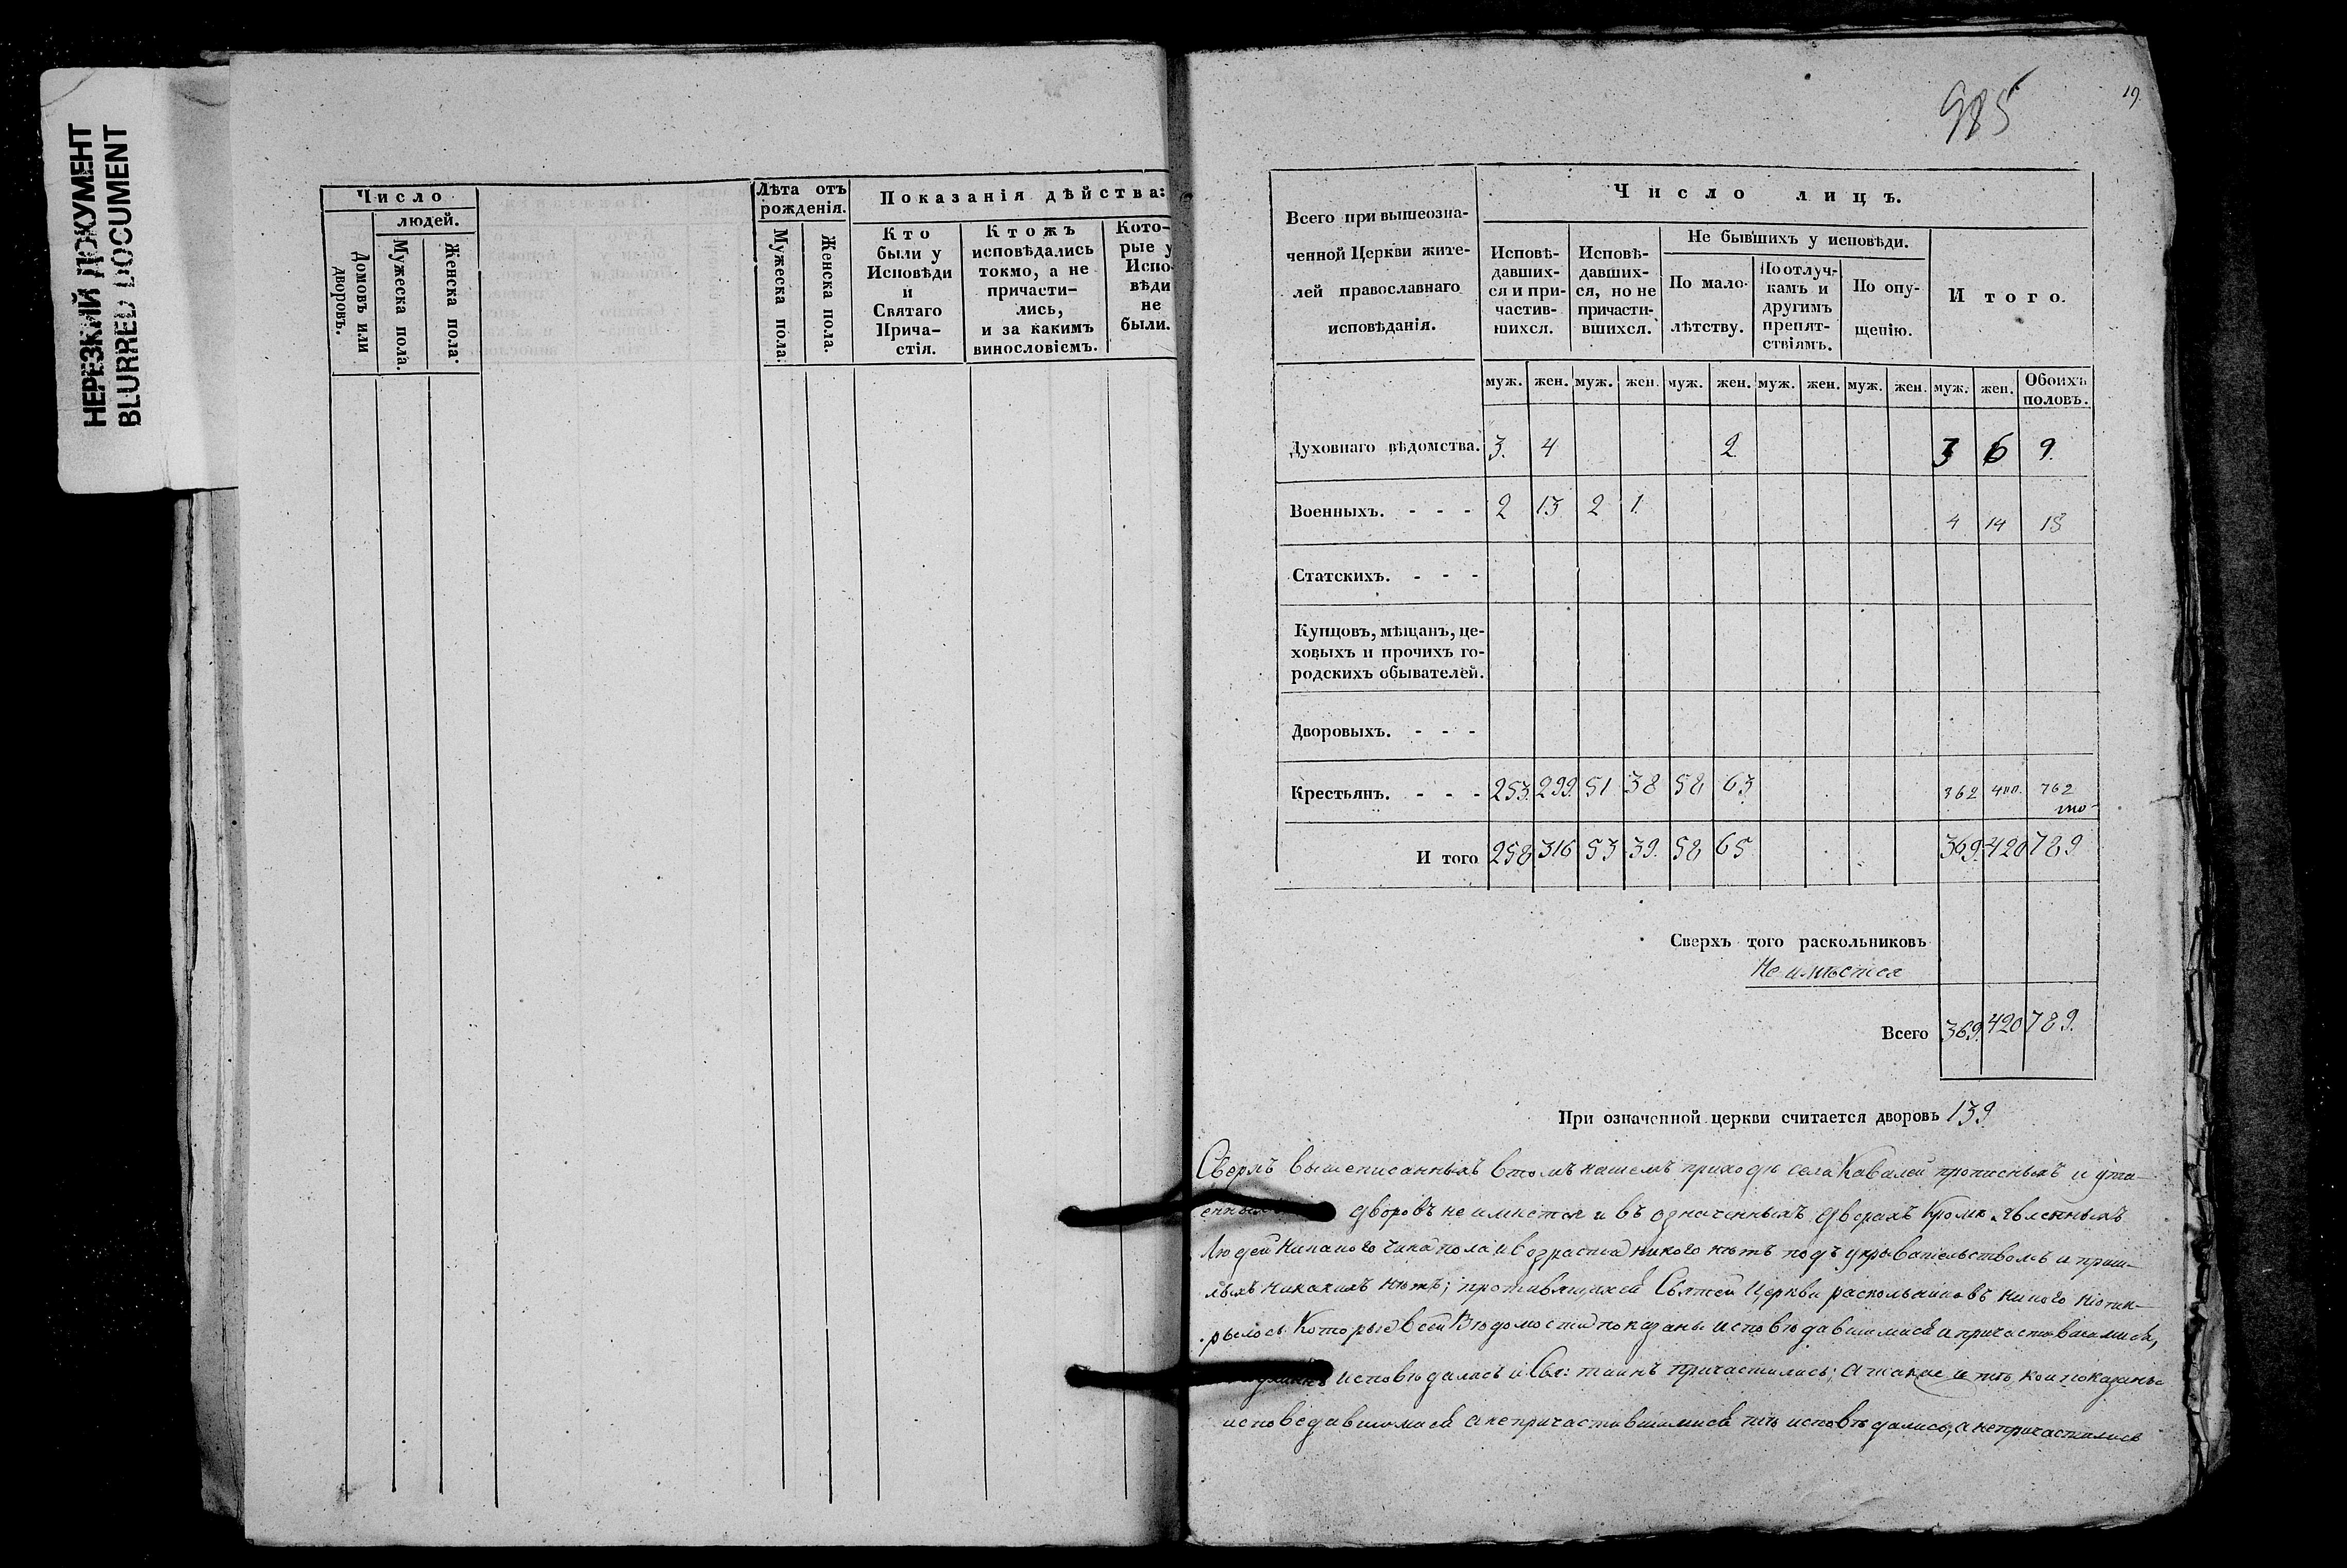 НЕРЕЗКИЙ ДОКУМЕНТ
BLURRED DOCUMENT
Число
людей.
Домовъ или дворовъ.
Мужеска пола.
Женска пола.
Лѣта отъ рожденія.
Мужеска пола.
Женска пола.
Показанія дѣйства:
Кто
были у
Исповѣди
и
Святаго
Прича-
стія.
Ктожъ
исповѣдались
токмо, а не
причасти-
лись,
и за какимъ
винословіемъ.
Кото-
рые у
Испо-
вѣди
не
были.
985
19.
Всего при вышеозна-
ченной Церкви жите-
лей православнаго
исповѣданія.
Число лицъ.
Исповѣ-
давших-
ся и при-
частив-
шихся.
Исповѣ-
давших-
ся, но не
причасти-
вшихся.
Не бывшихъ у исповѣди.
По мало-
лѣтству.
По отлуч-
камъ и
другимъ
препят-
ствіямъ.
По опу-
щенію.
И того.
муж. жен. муж. жен. муж. жен. муж. жен. муж. жен. муж. жен. Обоихъ половъ.
Духовнаго вѣдомства. 3. 4 2 3 6 9.
Военныхъ. - - - 2 13 2 1 4 14 18
Статскихъ. - - -
Купцовъ, мѣщанъ, це-
ховыхъ и прочихъ го-
родскихъ обывателей.
Дворовыхъ. - - -
Крестьянъ. - - - 253. 299. 51 38 58 63 362 400. 762
И того 258 316 53 39. 58 65 369. 420 789
Сверхъ того раскольниковъ
Не имѣется
Всего 369. 420 789.
При означенной церкви считается дворовъ 139
Сверхъ вышеписанныхъ втомъ нашемъ приходѣ села Ковалей прописныхъ и ута-
дворовъ не имѣется и въ означенныхъ дворахъ Кромѣ явленныхъ
Людей Никакого чина пола и возраста никого нѣтъ подъ укрывательствомъ и приш-
лыхъ никакихъ нѣтъ; противящихся Святей Церкви раскольниковъ никого неотк-
рылось Которые в сей Вѣдомости показаны исповѣдавшимися и причастившимися,
исповѣдались и Свя: таинъ причастились; а также и тѣ, кои показаны
исповедавшимися а непричастившимися тѣ исповѣдались, а непричастились